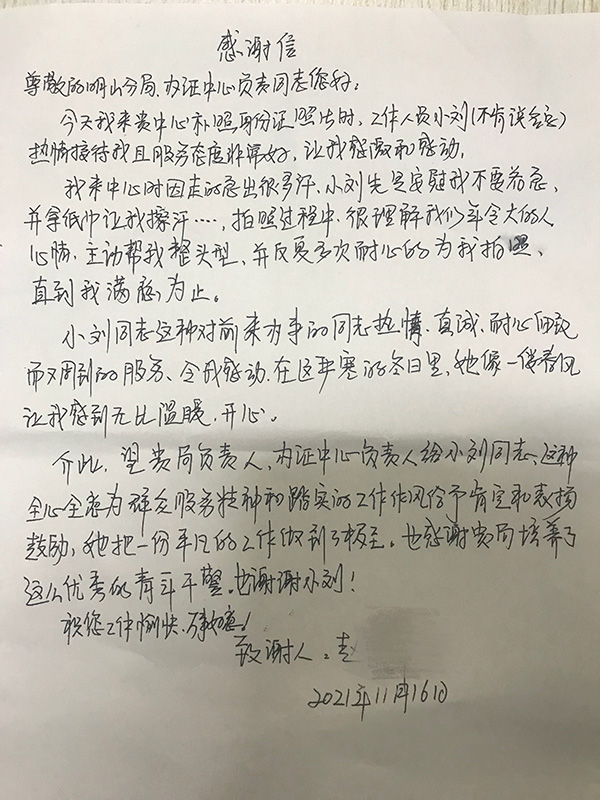 感谢信
尊敬的明山分局、办证中心负责同志您好：
今天我来贵中心补照身份证照片时，工作人员小刘(不肯说全名)
热情接待我且服务态度非常好，让我感激和感动。
我来中心时因走的急出很多汗，小刘先是安慰我不要着急，
并拿纸巾让我擦汗……，拍照过程中，很理解我们年令大的人
心情，主动帮我整头型，并反复多次耐心的为我拍照，
直到我满意为止。
小刘同志这种对前来办事的同志热情、真诚、耐心细致
而又周到的服务、令我感动，在这非寒的冬日里，她像一缕春风
让我感到无比温暖、开心。
介此，望贵局负责人，办证中心负责人给小刘同志、这种
全心全意为群众服务精神和踏实的工作作风给予肯定和表扬
鼓励，她把一份平凡的工作做到了极至。也感谢贵局培养了
这么优秀的青年干警。也谢谢小刘！
祝您工作愉快、万事如意！
致谢人：赵
2021年11月16日